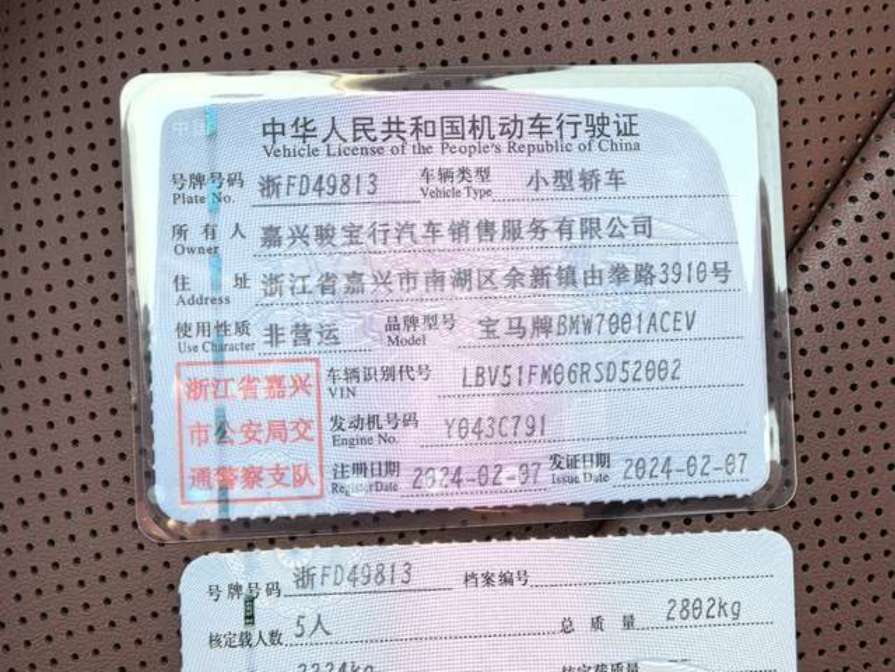 中华人民共和国机动车行驶证
Vehicle License of the People's Republic of China
号牌号码 浙FD49813 车辆类型 小型轿车
Plate No. Vehicle Type
所有人 嘉兴骏宝行汽车销售服务有限公司
Owner
住址 浙江省嘉兴市南湖区余新镇由拳路3910号
Address
使用性质 非营运 品牌型号 宝马牌BMW7001ACEV
Use Character Model
浙江省嘉兴 车辆识别代号 LBV51FM06RSD52002
VIN
市公安局交 发动机号码 Y043C791
Engine No.
通警察支队 注册日期 2024-02-07 发证日期 2024-02-07
Register Date Issue Date
号牌号码 浙FD49813 档案编号
核定载人数 5人 总质量 2802kg